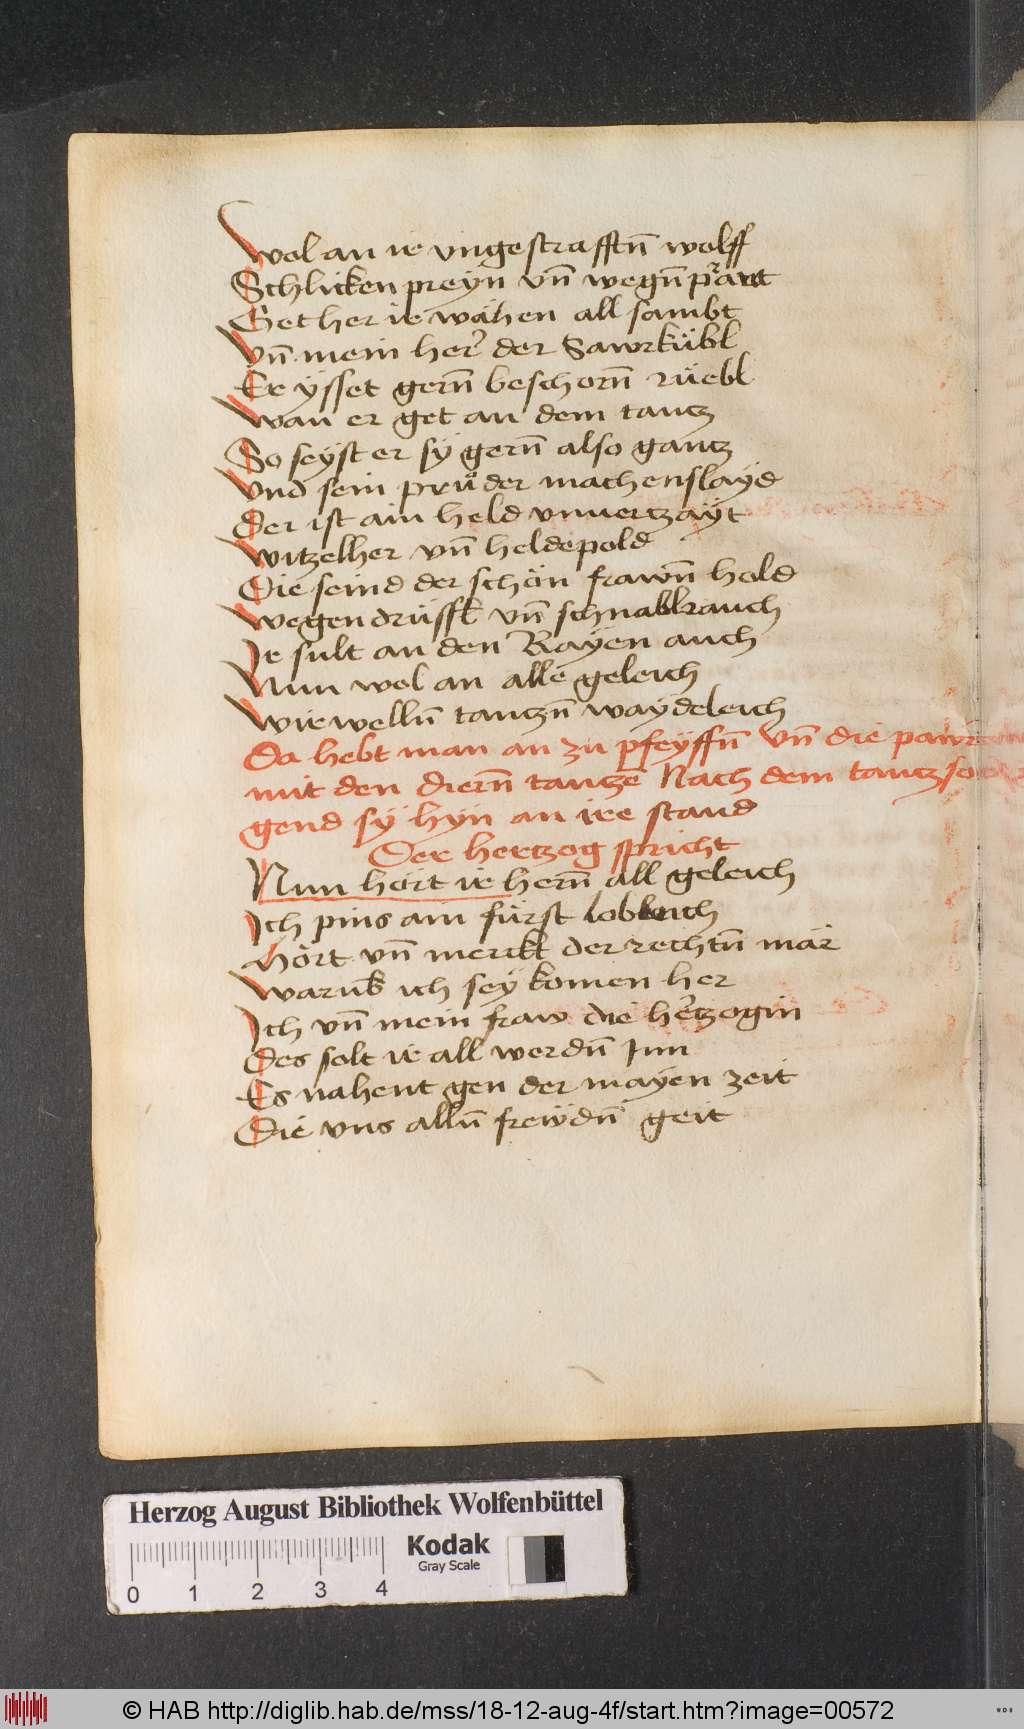 Wol an ir vngestrafftn̄ wolff
Schlickenpreyn vn̄ wegn̄
Get her ir wähen all sambt
Vn̄ mein her der Sawrkübl
Er ysset gern̄ beschorn̄ rüebl
Wan er get an dem tantz
So seyst er sÿ gern̄ also gantz
Vnd sein průder machenslayd
Der ist ain held vnuertzaÿt
Witzelher vn̄ heldepold
Die seind der schön frawn̄ hold
Wegendrüssl vn̄ schnabkrauch
Ir sult an den Rayen auch
Nun wol an alle geleich
Wir welln̄ tantzn̄ waydeleich
Da hebt man an zu pfeÿffn̄ Vn̄ die
mit den diern̄ tantzen̄ Nach dem tantz
gend sÿ hÿn an ire stand
Der hertzog spricht
Nun hört ir hern̄ all geleich
Ich pins ain fürst lobleich
Hört vn̄ merckt der rechtn̄ mär
Warub̄ ich sey komen her
Ich vn̄ mein fraw die hertzogin
Des solt ir all werdn̄ Inn
Es nahent gen der mayen zeit
Die vns alln̄ frewdn̄ geit
Herzog August Bibliothek Wolfenbüttel
0 1 2 3 4
Kodak
Gray Scale
© HAB http://diglib.hab.de/mss/18-12-aug-4f/start.htm?image=00572